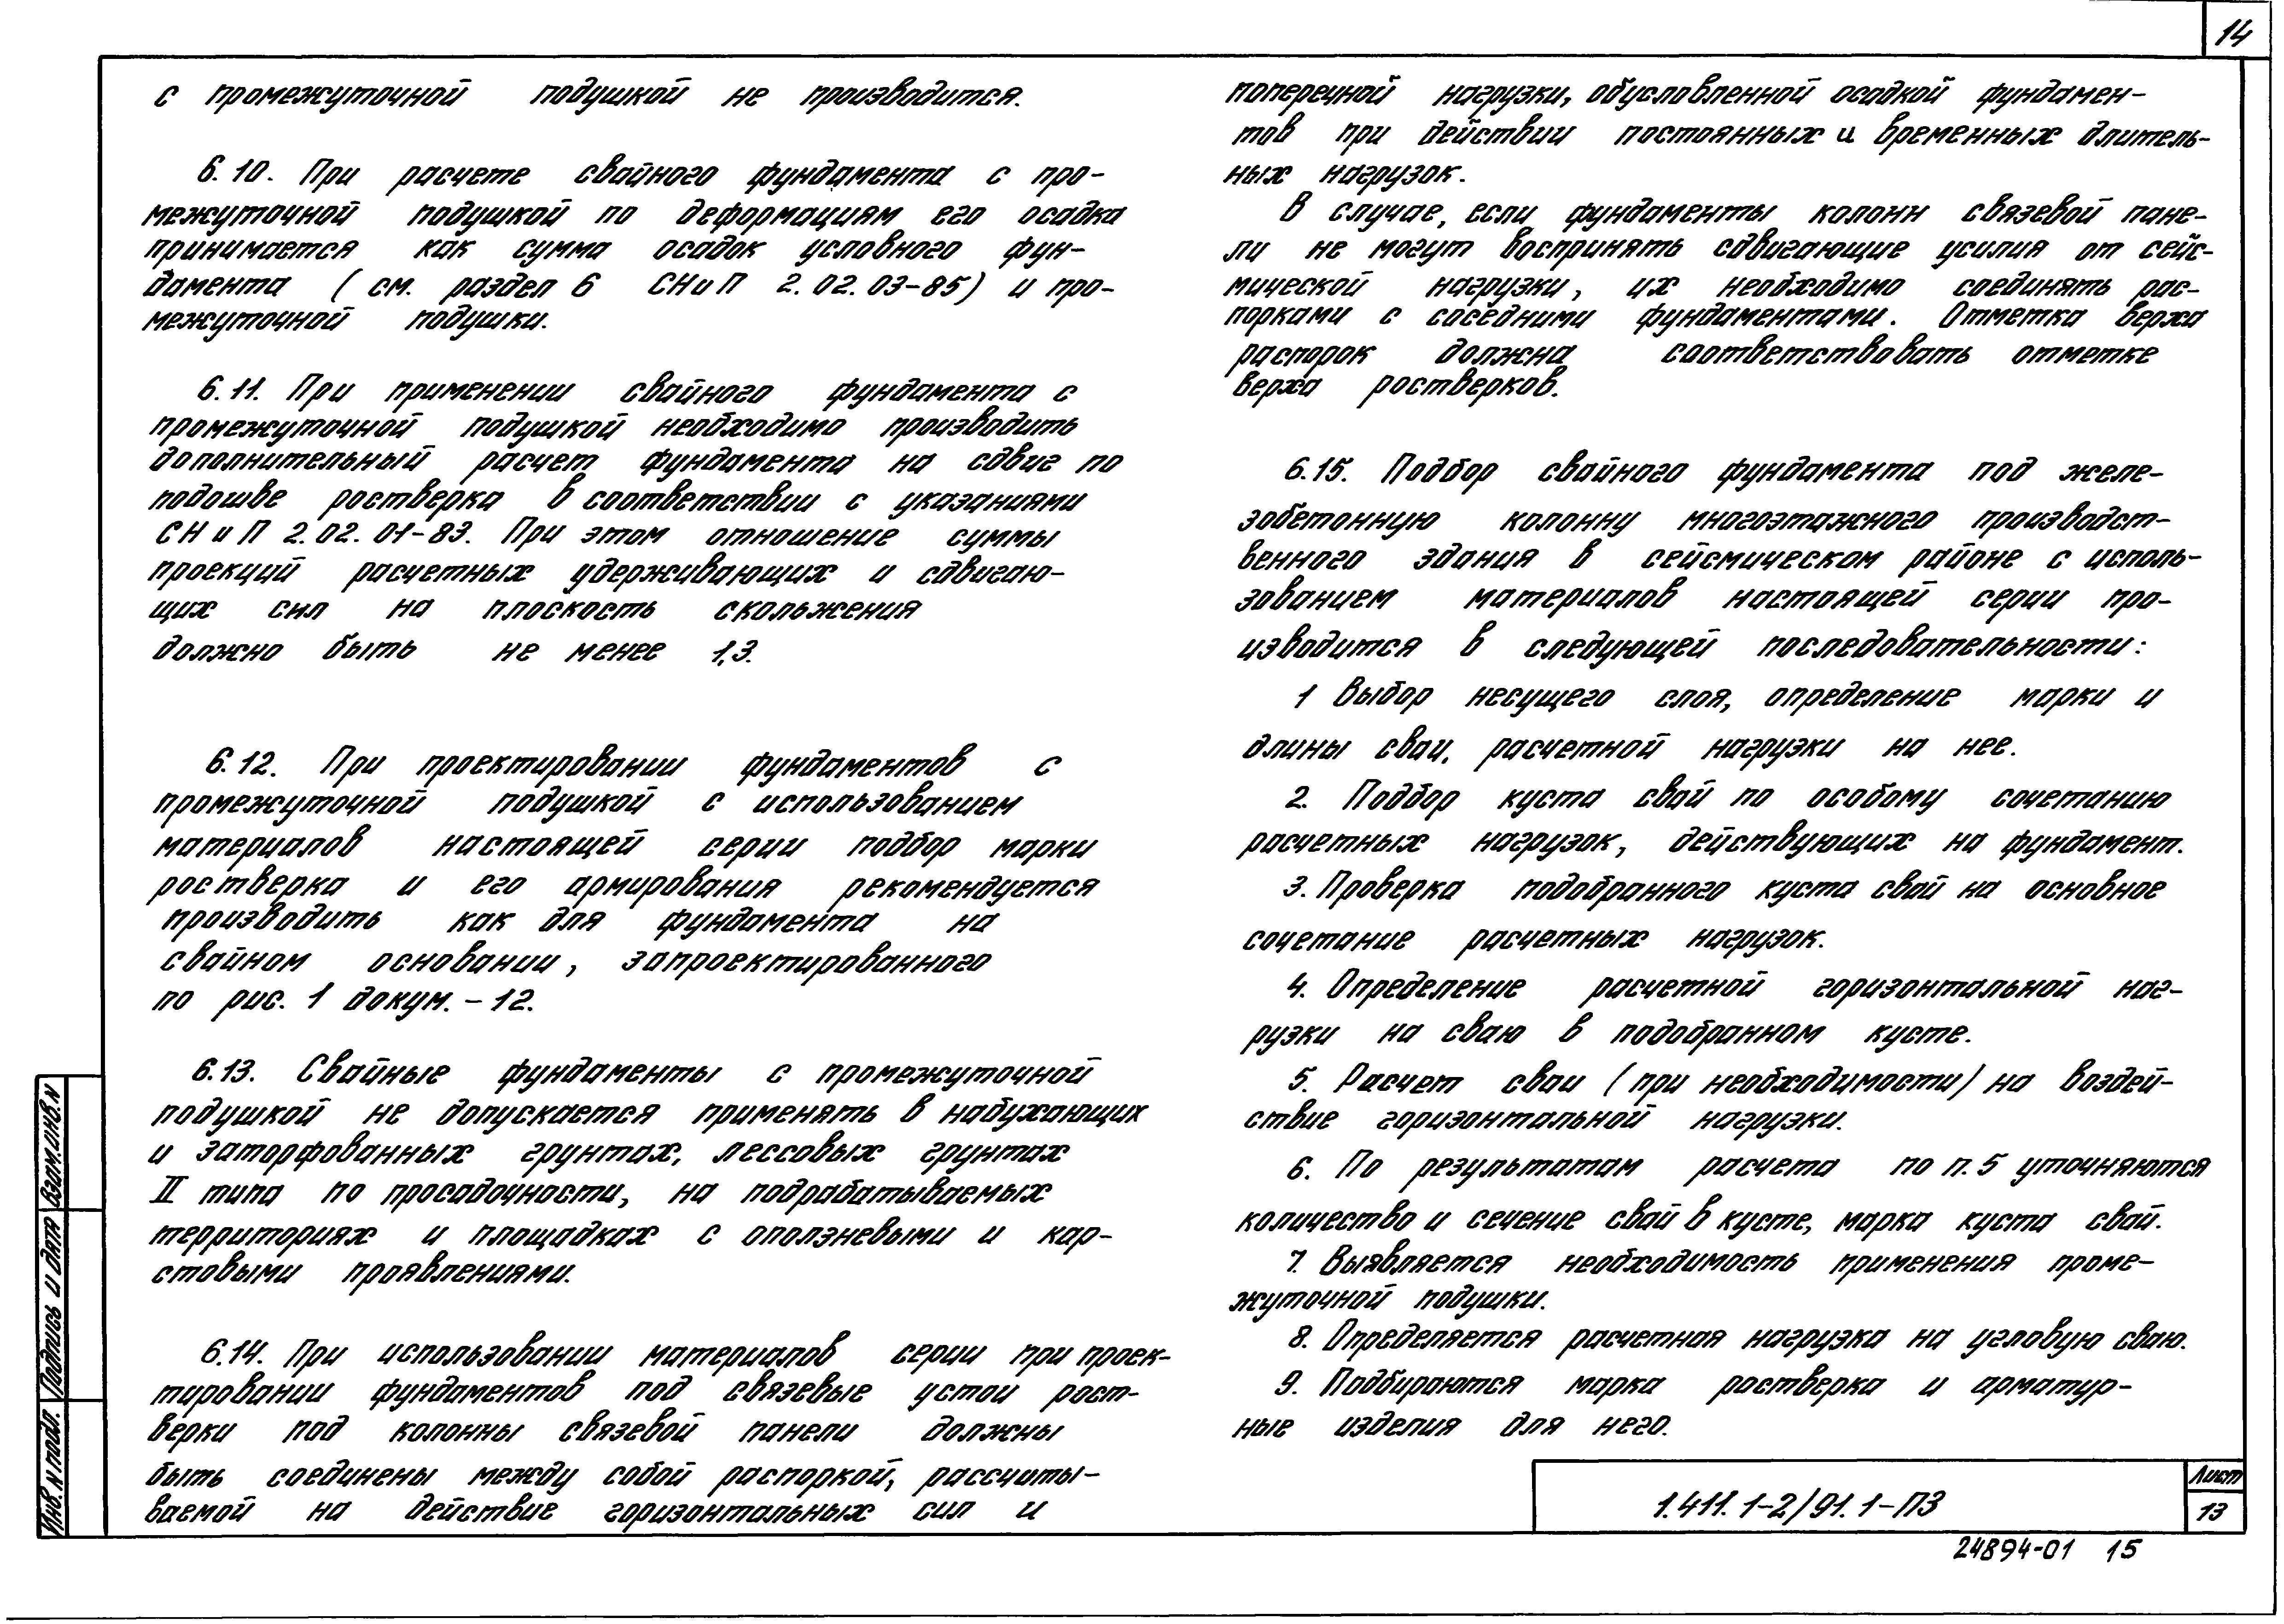 14
с промежуточной подушкой не производится.
6.10. При расчете свайного фундамента с про-
межуточной подушкой по деформациям его осадка
принимается как сумма осадок условного фун-
дамента (см. раздел 6 СНиП 2.02.03-85) и про-
межуточной подушки.
6.11. При применении свайного фундамента с
промежуточной подушкой необходимо производить
дополнительный расчет фундамента на сдвиг по
подошве ростверка в соответствии с указаниями
СНиП 2.02.01-83. При этом отношение суммы
проекций расчетных удерживающих и сдвигаю-
щих сил на плоскость скольжения
должно быть не менее 1,3.
6.12. При проектировании фундаментов с
промежуточной подушкой с использованием
материалов настоящей серии подбор марки
ростверка и его армирования рекомендуется
производить как для фундамента на
свайном основании, запроектированного
по рис. 1 докум. -12.
6.13. Свайные фундаменты с промежуточной
подушкой не допускается применять в набухающих
и заторфованных грунтах, лессовых грунтах
II типа по просадочности, на подрабатываемых
территориях и площадках с оползневыми и кар-
стовыми проявлениями.
6.14. При использовании материалов серии при проек-
тировании фундаментов под связевые устои рост-
верки под колонны связевой панели должны
быть соединены между собой распоркой, рассчиты-
ваемой на действие горизонтальных сил и
поперечной нагрузки, обусловленной осадкой фундамен-
тов при действии постоянных и временных длитель-
ных нагрузок.
В случае, если фундаменты колонн связевой пане-
ли не могут воспринять сдвигающие усилия от сейс-
мической нагрузки, их необходимо соединять рас-
порками с соседними фундаментами. Отметка верха
распорок должна соответствовать отметке
верха ростверков.
6.15. Подбор свайного фундамента под желе-
зобетонную колонну многоэтажного производст-
венного здания в сейсмическом районе с исполь-
зованием материалов настоящей серии про-
изводится в следующей последовательности:
1 Выбор несущего слоя, определение марки и
длины сваи, расчетной нагрузки на нее.
2. Подбор куста свай по особому сочетанию
расчетных нагрузок, действующих на фундамент.
3. Проверка подобранного куста свай на основное
сочетание расчетных нагрузок.
4. Определение расчетной горизонтальной наг-
рузки на сваю в подобранном кусте.
5. Расчет сваи (при необходимости) на воздей-
ствие горизонтальной нагрузки.
6. По результатам расчета по п.5 уточняются
количество и сечение свай в кусте, марка куста свай.
7. Выявляется необходимость применения проме-
жуточной подушки.
8. Определяется расчетная нагрузка на угловую сваю.
9. Подбираются марка ростверка и арматур-
ные изделия для него.
Инв. N подл. Подпись и дата Взам.инв.N
1.411.1-2/91.1-ПЗ
Лист
13
24894-01 15